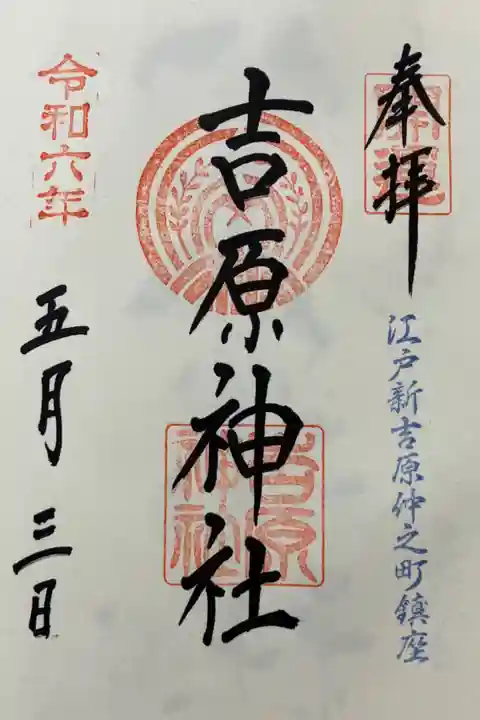 奉拝
開運
江戸新吉原仲之町鎮座
吉原神社
吉原神社
令和六年
五月三日